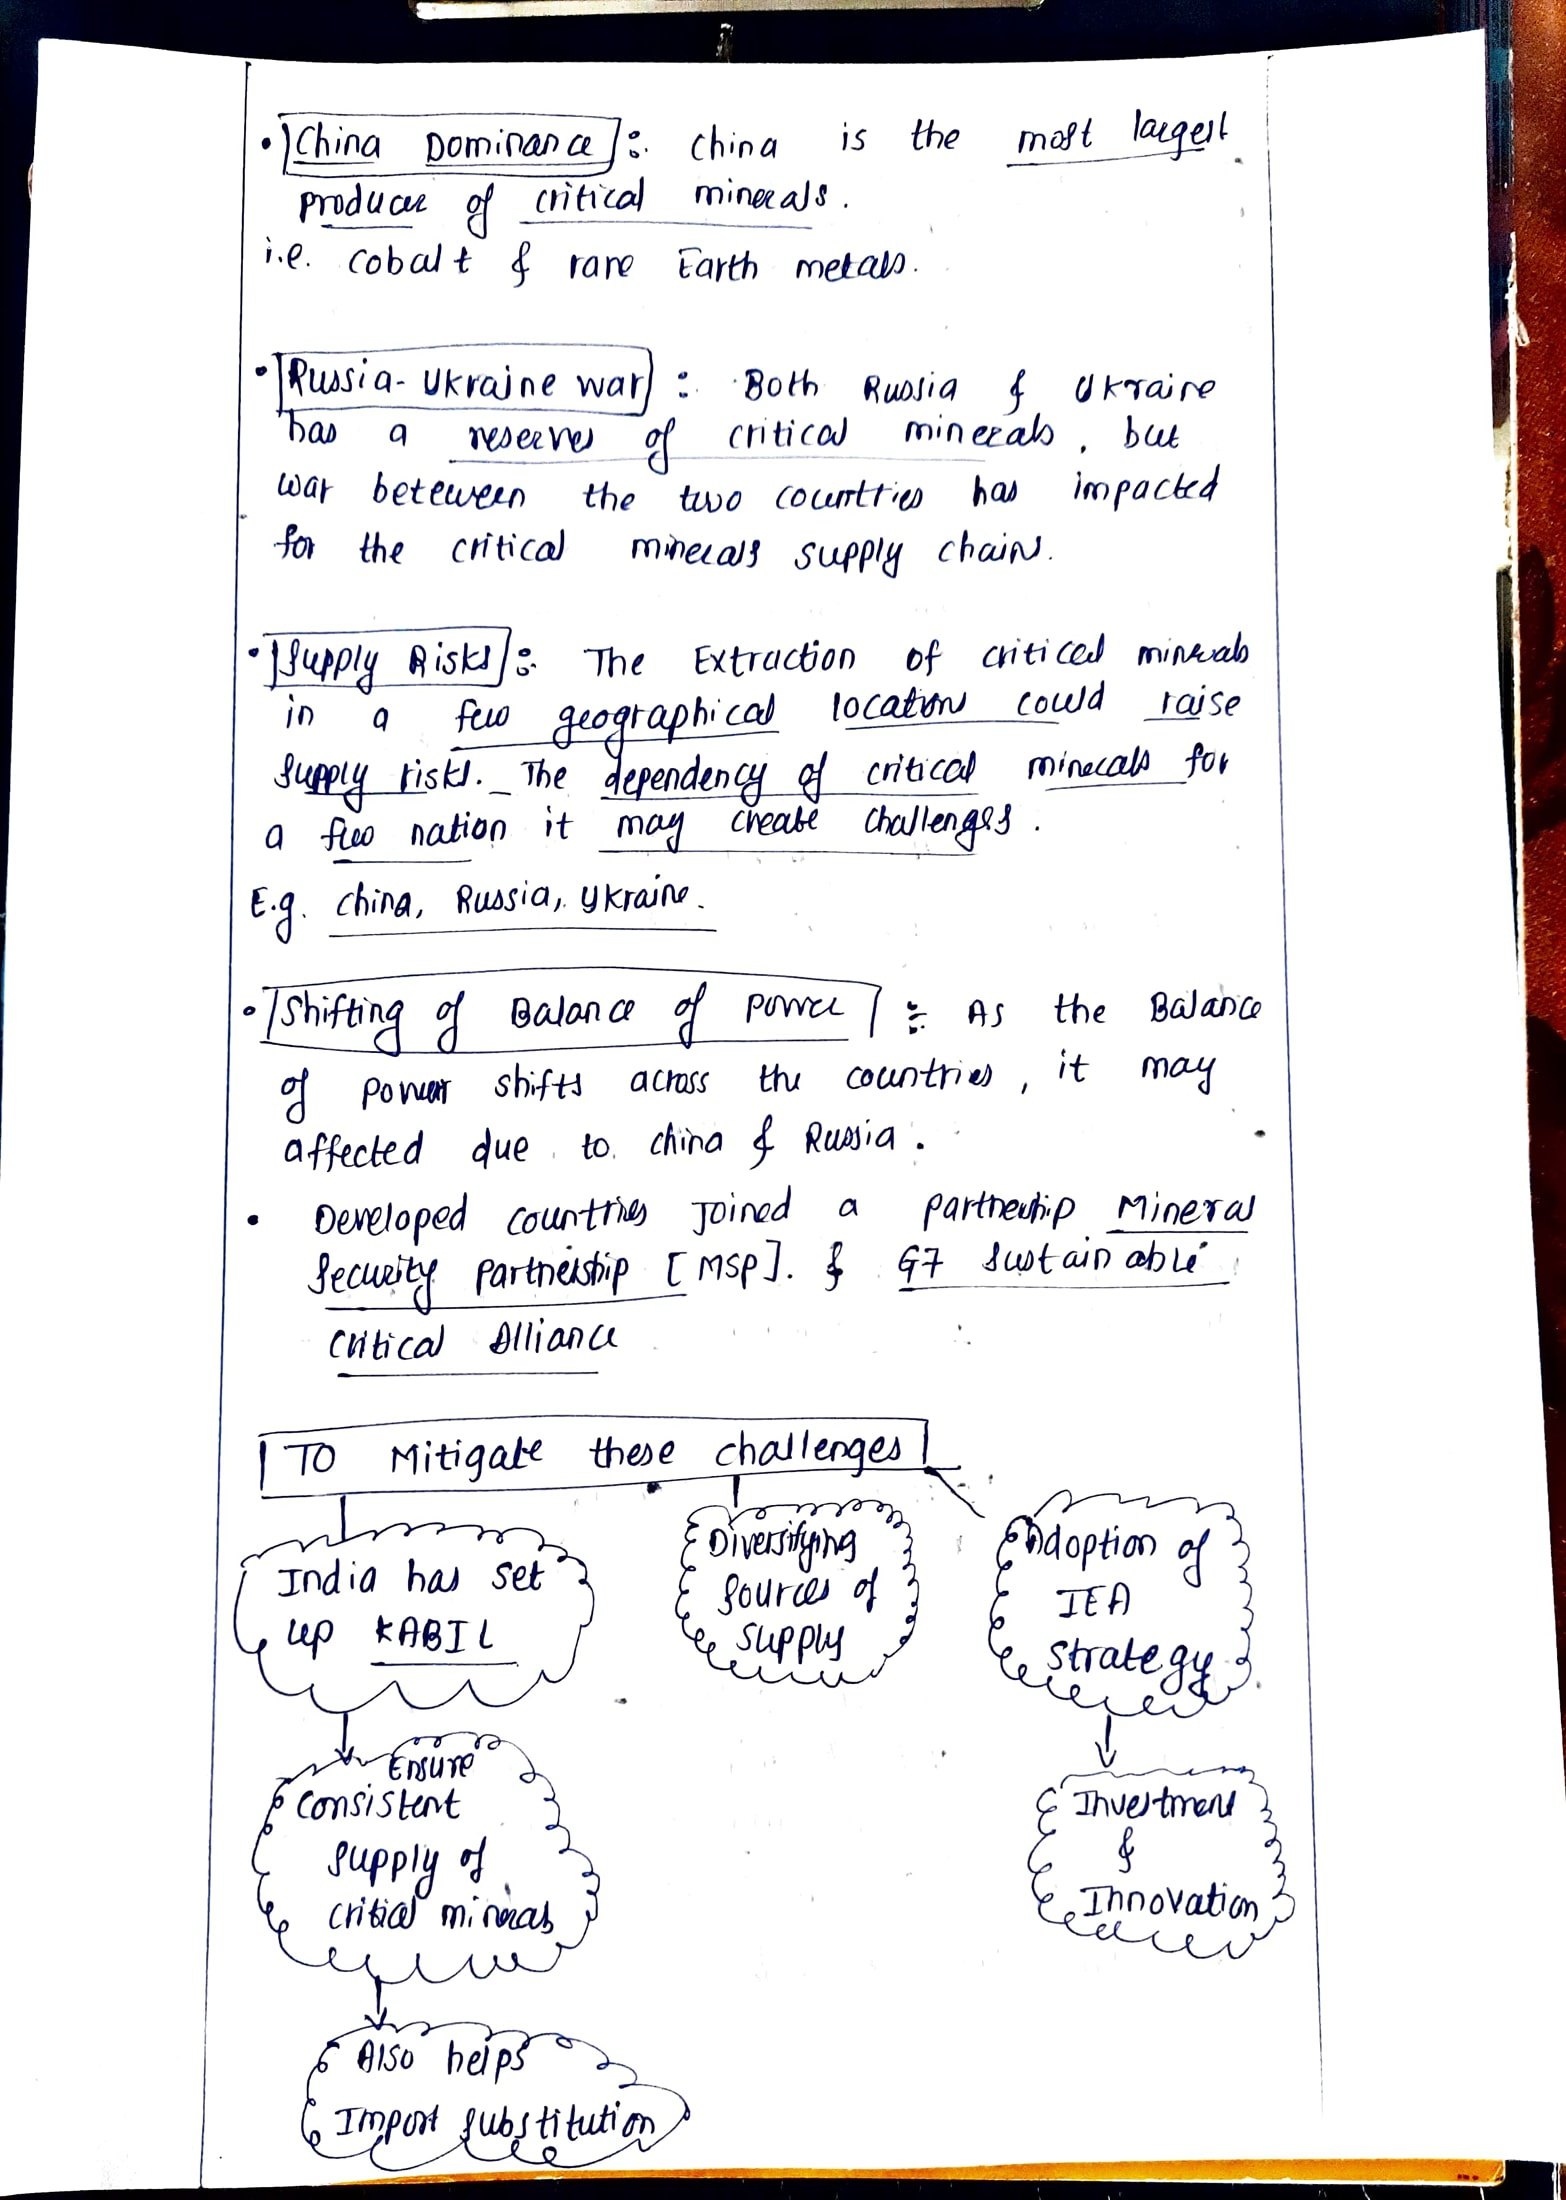 • China Dominance : China is the most largest
producer of critical minerals.
i.e. cobalt & rare Earth metals.
• Russia-Ukraine war : Both Russia & Ukraine
has a reserves of critical minerals, but
war beteween the two countries has impacted
for the critical minerals supply chains.
• Supply Risks : The Extraction of critical minerals
in a few geographical locations could raise
supply risks. The dependency of critical minerals for
a few nation it may create challenges.
E.g. China, Russia, Ukraine.
• Shifting of Balance of Power : As the Balance
of power shifts across the countries, it may
affected due to China & Russia.
• Developed countries Joined a partnership Mineral
Security Partnership [MSP]. & G7 Sustainable
Critical Alliance
TO Mitigate these challenges
India has set
up KABIL
Diversifying
Sources of
Supply
Adoption of
IEA
Strategy
Ensure
Consistent
Supply of
critical minerals
Investment
&
Innovation
Also helps
Import Substitution